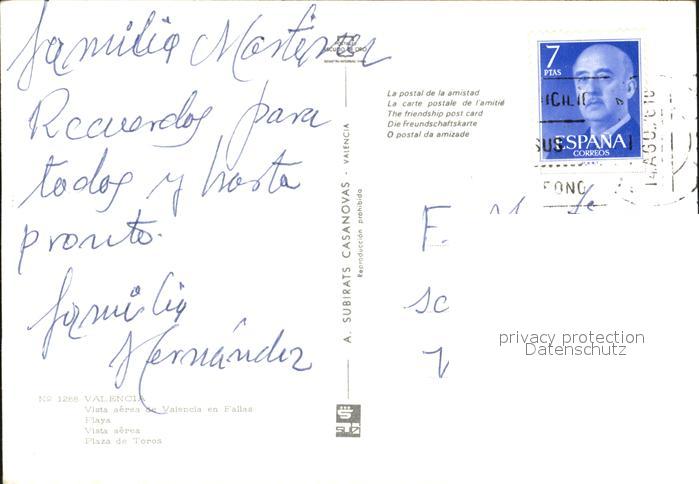 familia Martinez
Recuerdos para
todos y hasta
pronto.
familia
Hernández
Nº 1288 VALENCIA
Vista aérea de Valencia en Fallas
Playa
Vista aérea
Plaza de Toros
A. SUBIRATS CASANOVAS - VALENCIA
Reproducción prohibida
La postal de la amistad
La carte postale de l'amitié
The friendship post card
Die Freundschaftskarte
O postal da amizade
7
PTAS
ESPAÑA
CORREOS
14 AGO.
F.
sc
privacy protection
Datenschutz